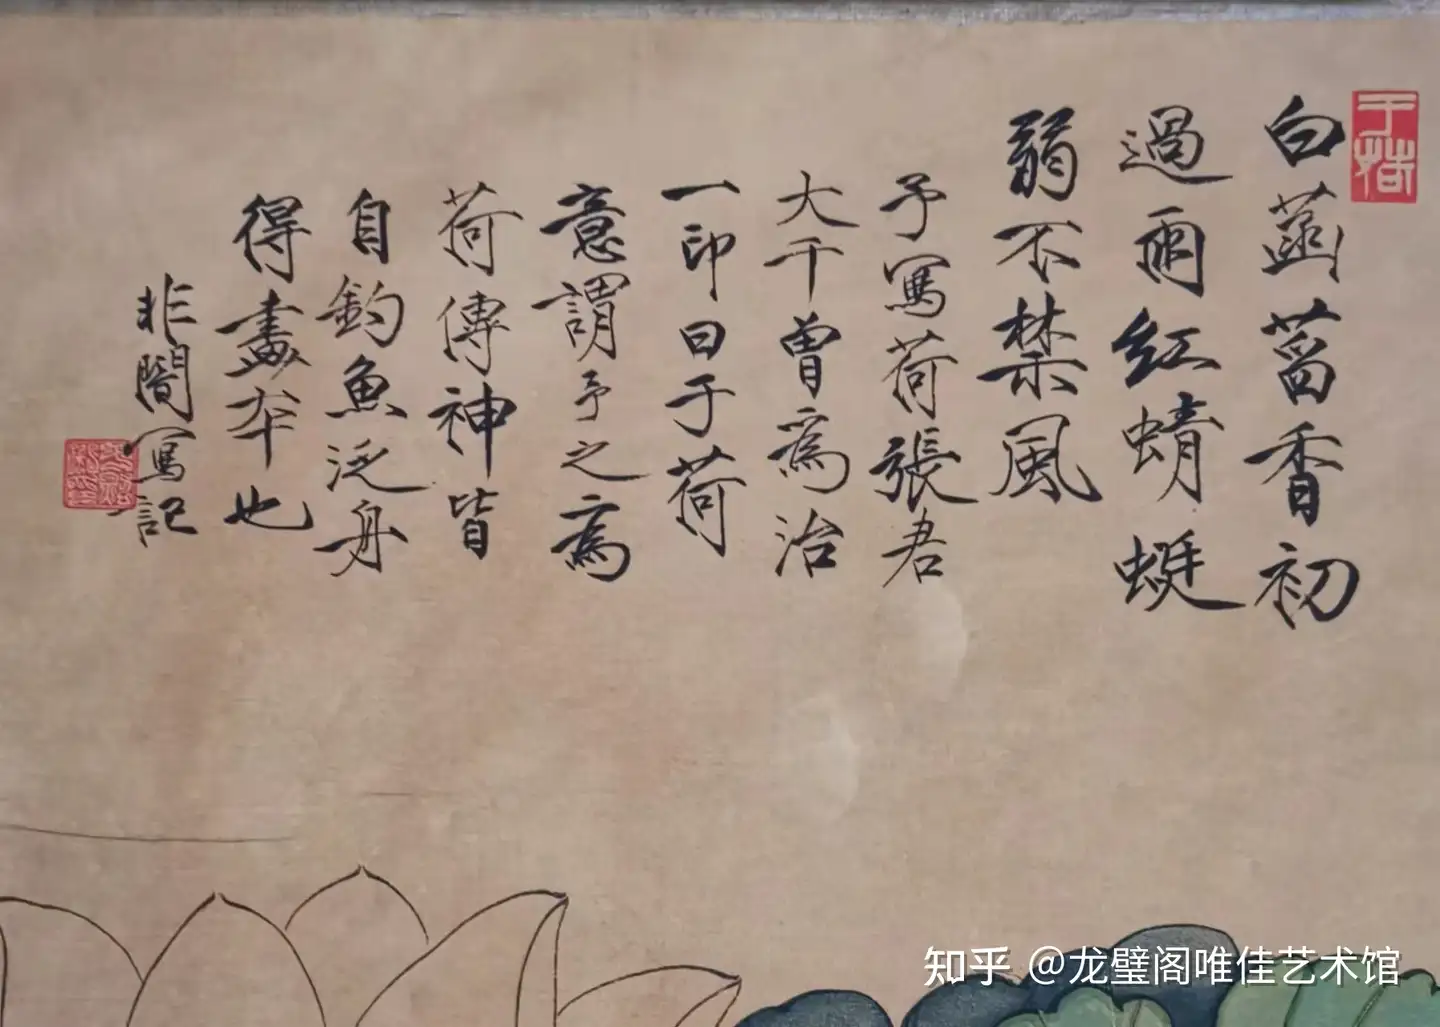 白菡萏香初
過雨紅蜻蜓
弱不禁風
予寫荷張君
大千曾為治
一印曰于荷
意謂予之為
荷傳神皆
自釣魚泛舟
得畫本也
非闇寫記
于荷
知乎 @龙璧阁唯佳艺术馆